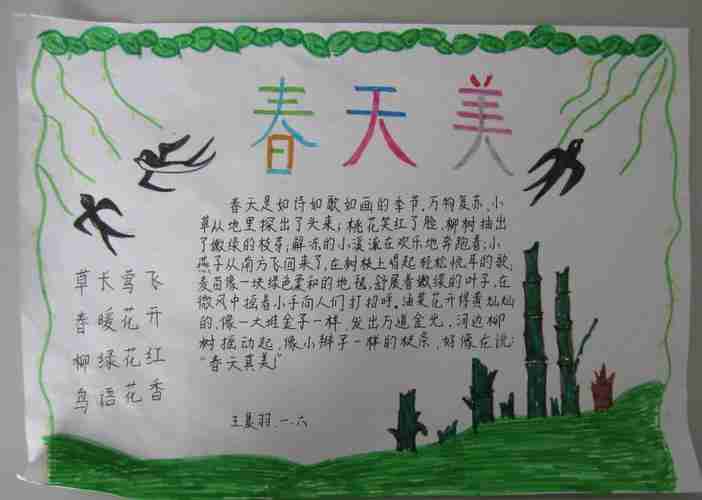 春天美
春天是如诗如歌如画的季节,万物复苏,小
草从地里探出了头来;桃花笑红了脸,柳树抽出
了嫩绿的枝芽;解冻的小溪流在欢乐地奔跑着;小
燕子从南方飞回来了,在树枝上唱起轻松悦耳的歌;
麦苗像一块绿色柔和的地毯,舒展着嫩绿的叶子,在
微风中摇着小手向人们打招呼,油菜花开得黄灿灿
的,像一大堆金子一样,发出万道金光,河边柳
树摇动起,像小辫子一样的枝条,好像在说:
“春天真美!”
草长莺飞
春暖花开
柳绿花红
鸟语花香
王晨羽.一.六